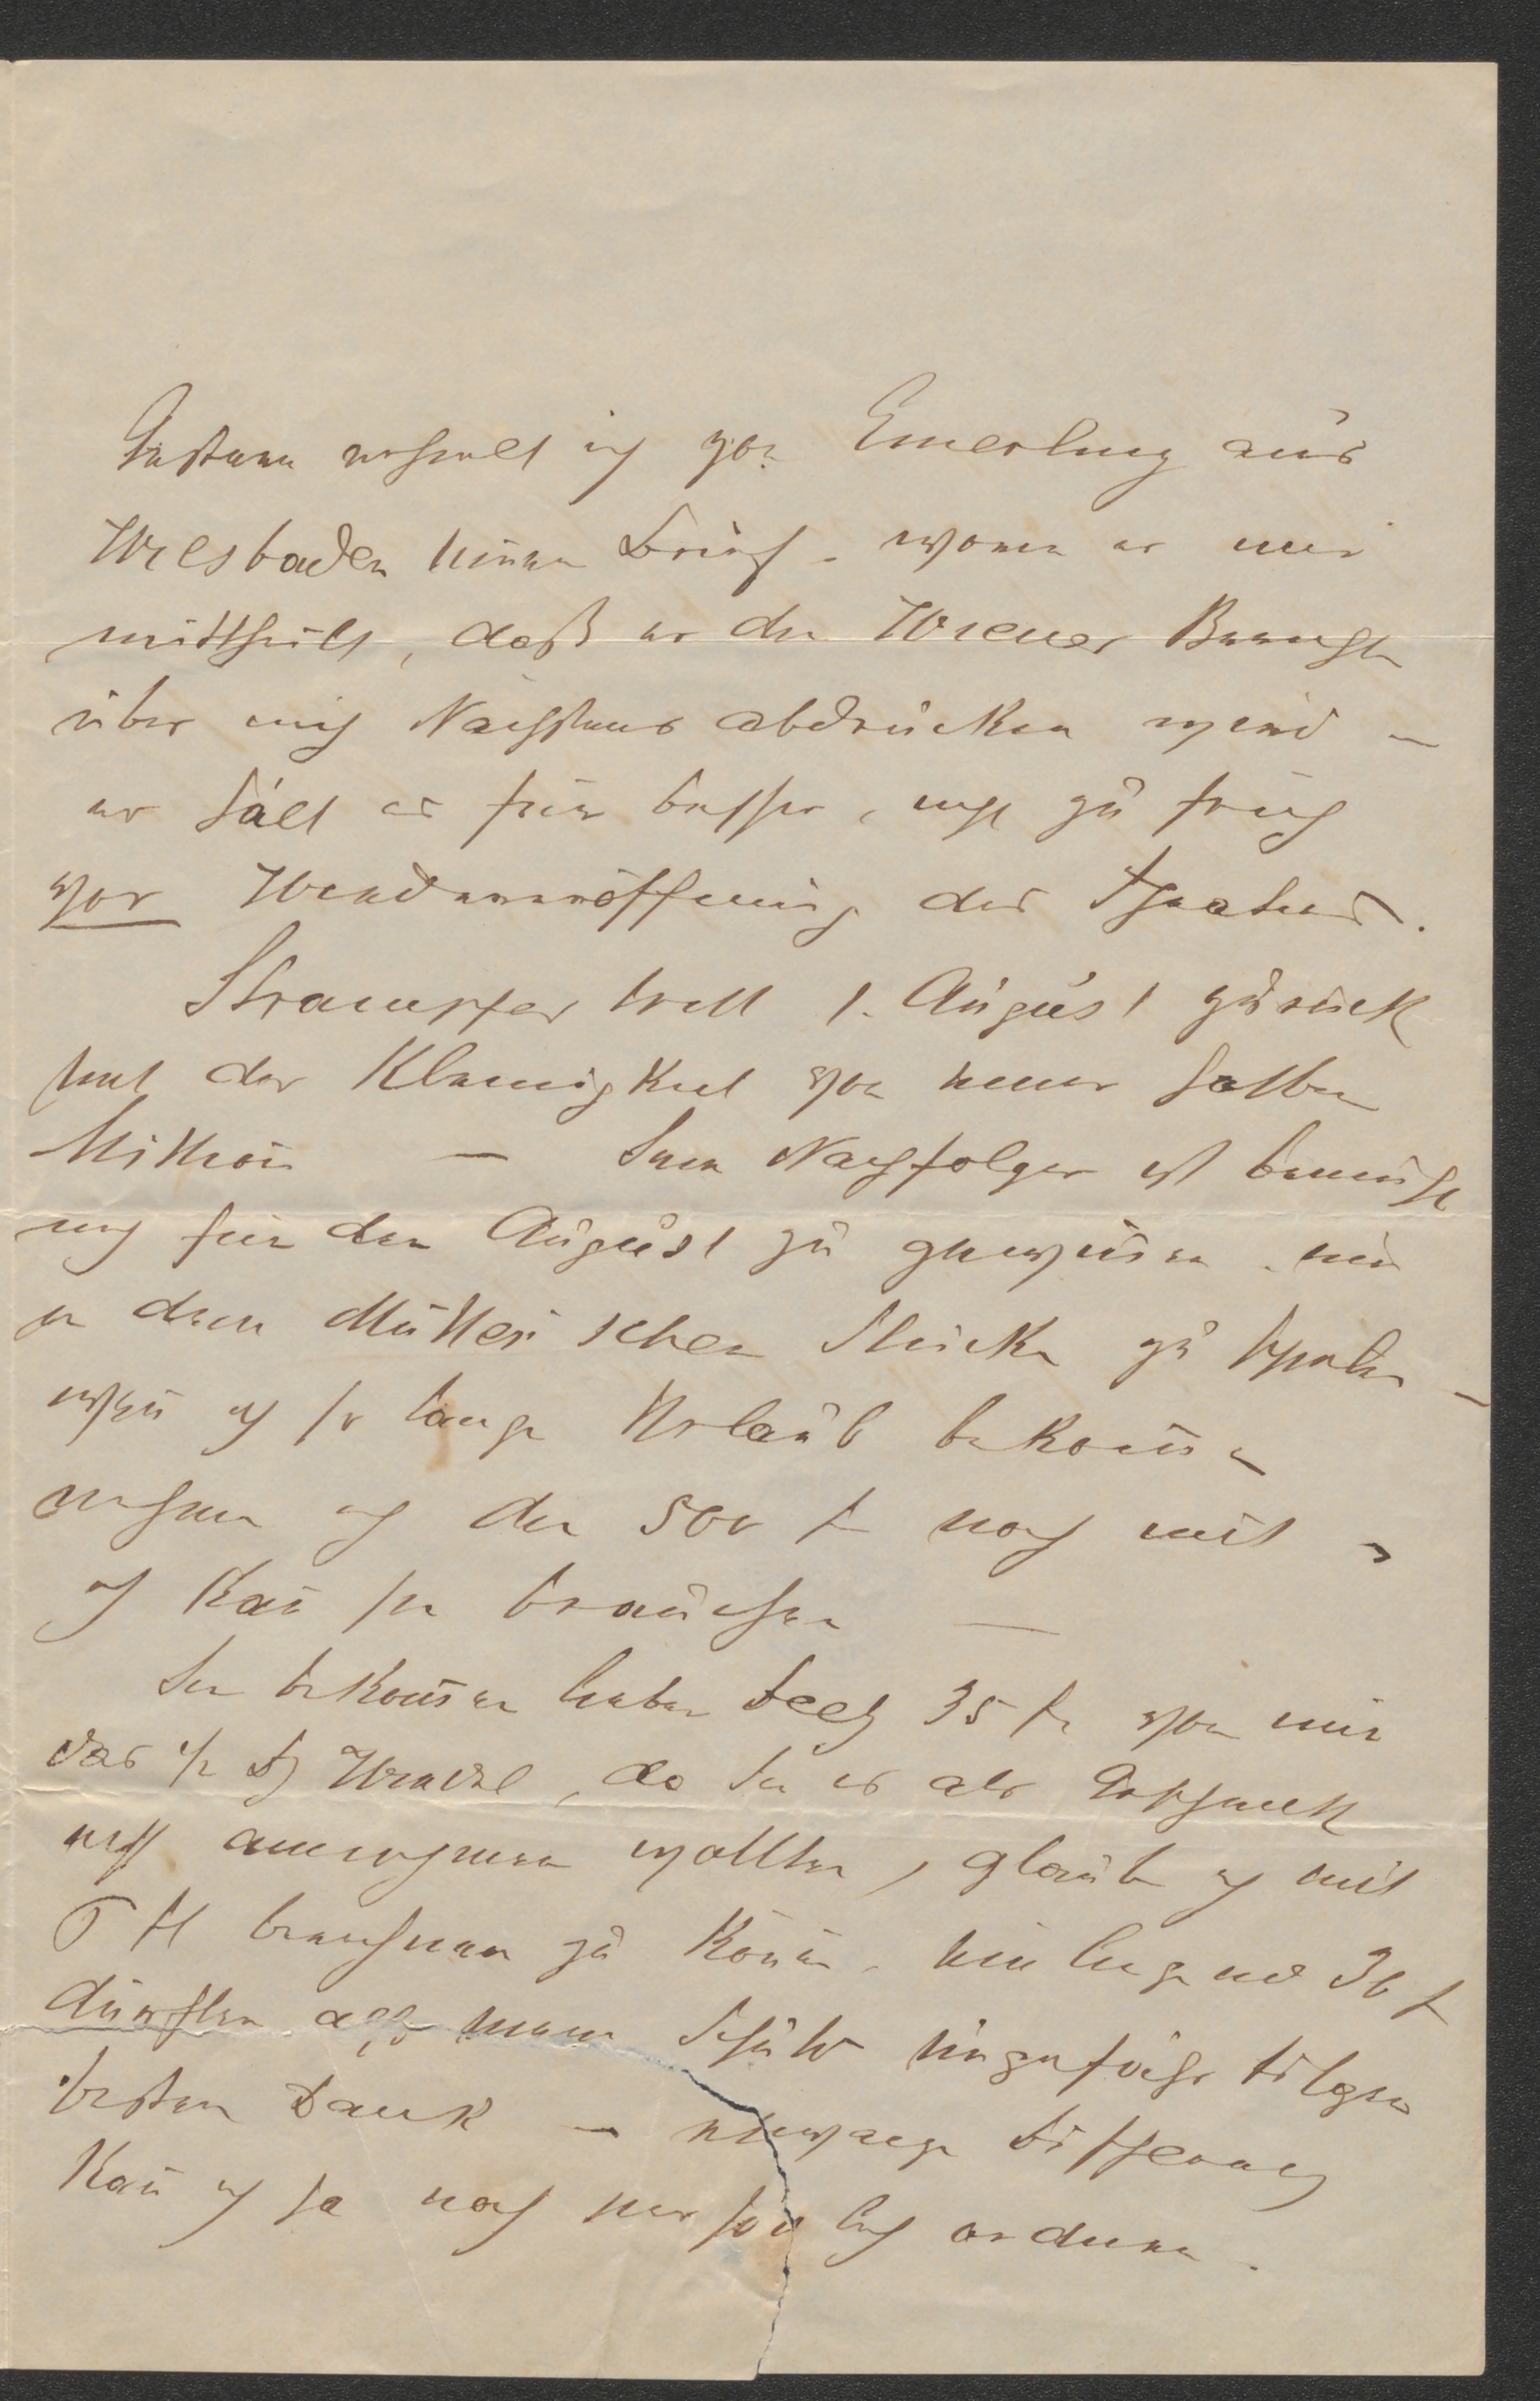 Gestern erhielt ich von Emerling aus
Wiesbaden einen Brief, worin er mir
mittheilt, daß er den Wiener Bericht
über mich Nächstens abdrucken wird –
er hält es für besser, nicht zu früh
vor Wiedereröffnung des Theaters.
Strampfer tritt 1. August zurück
mit der Kleinigkeit von einer halben
Million – Sein Nachfolger ist bemüht
mich für den August zu gewinen, um
in dem Müller'schen Stücke zu spielen –
wen ich so lange Urlaub bekome
nehme ich die 500 f noch mit,
ich kan sie brauchen –
Sie bekomen lieber 35 f von mir
das 1/2 Dz da Sie es als Geschenk
nicht annehmen wollten, glaube ich mit
5 fl berechnen zu könen, einliegend 36 f
dürften also meine Schuld ungefähr tilgen
besten Dank – etwaige Differenz
kan ich ja noch persönlich ordnen.